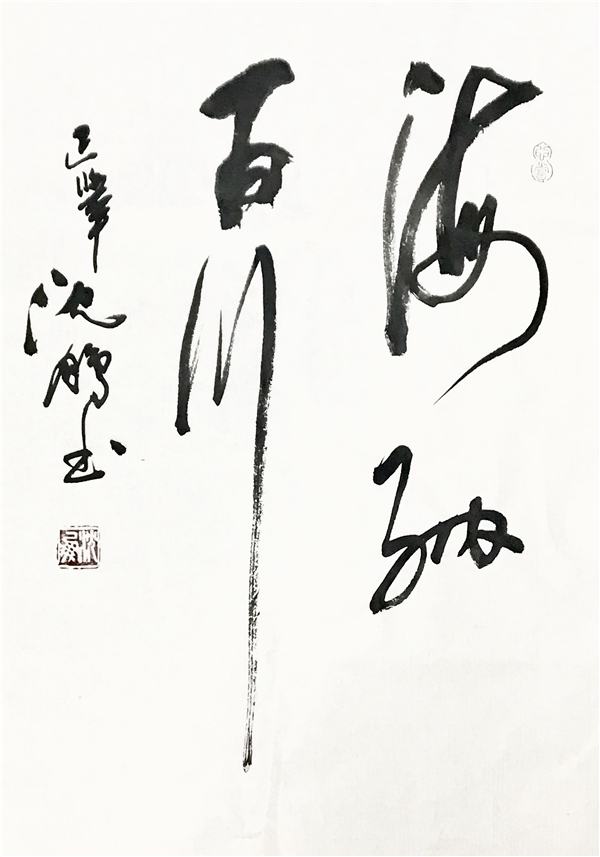 海纳
百川
沈鹏书